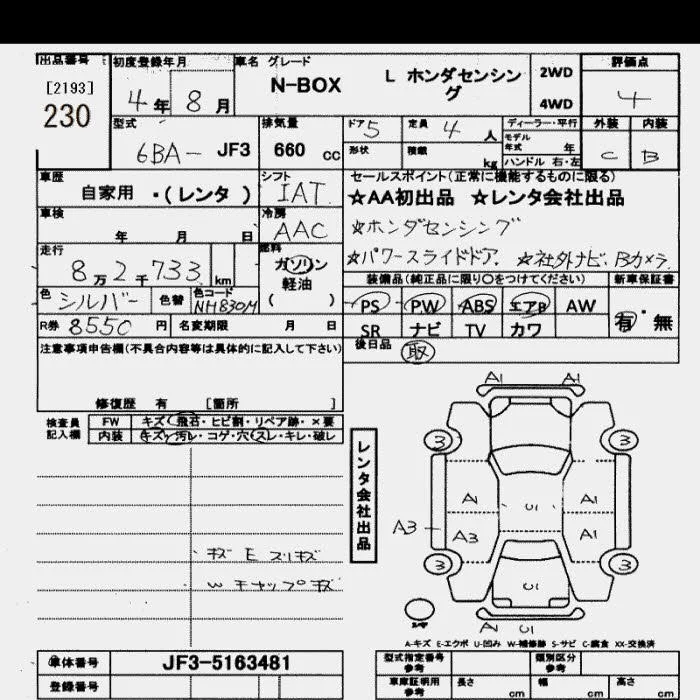 出品番号 初度登録年月 車名 グレード 評価点
[2193] N-BOX L ホンダセンシング 2WD
230 4年 8月 4WD 4
型式 排気量 ドア 5 定員 4人 ディーラー・平行 外装 内装
6BA- JF3 660 cc 形状 積載 kg モデル年式 年 ハンドル 右・左 C B
車歴 シフト セールスポイント(正常に機能するものに限る)
自家用 ・(レンタ ) IAT ☆AA初出品 ☆レンタ会社出品
車検 冷房 ☆ホンダセンシング
年 月 日 AAC
走行 燃料 ☆パワースライドドア. ☆社外ナビ、Bカメラ.
8万2千733 km ガソリン
軽油
( )
装備品(純正品に限り○をつけてください) 新車保証書
色 シルバー 色替 色コード NH830M PS PW ABS エアB AW 有・無
R券 8550 円 名変期限 月 日 SR ナビ TV カワ
注意事項申告欄(不具合内容等は具体的に記入して下さい) 後日品 取
修復歴 有 [箇所 ]
検査員記入欄 FW キズ・飛石・ヒビ割・リペア跡・×要
内装 キズ・汚レ・コゲ・穴・スレ・キレ・破レ
レンタ会社出品
A1 A1
3 3
A1 U1 A1
A3 A3 A1
キズ E スリキズ
W チャップキズ
3 3
U1
A1 U1
A-キズ E-エクボ U-凹み W-補修跡 S-サビ C-腐食 XX-交換済
車体番号 JF3-5163481 型式指定番号 参考 類別区分 参考
登録番号 車庫証明用 参考 長さ cm 幅 cm 高さ cm